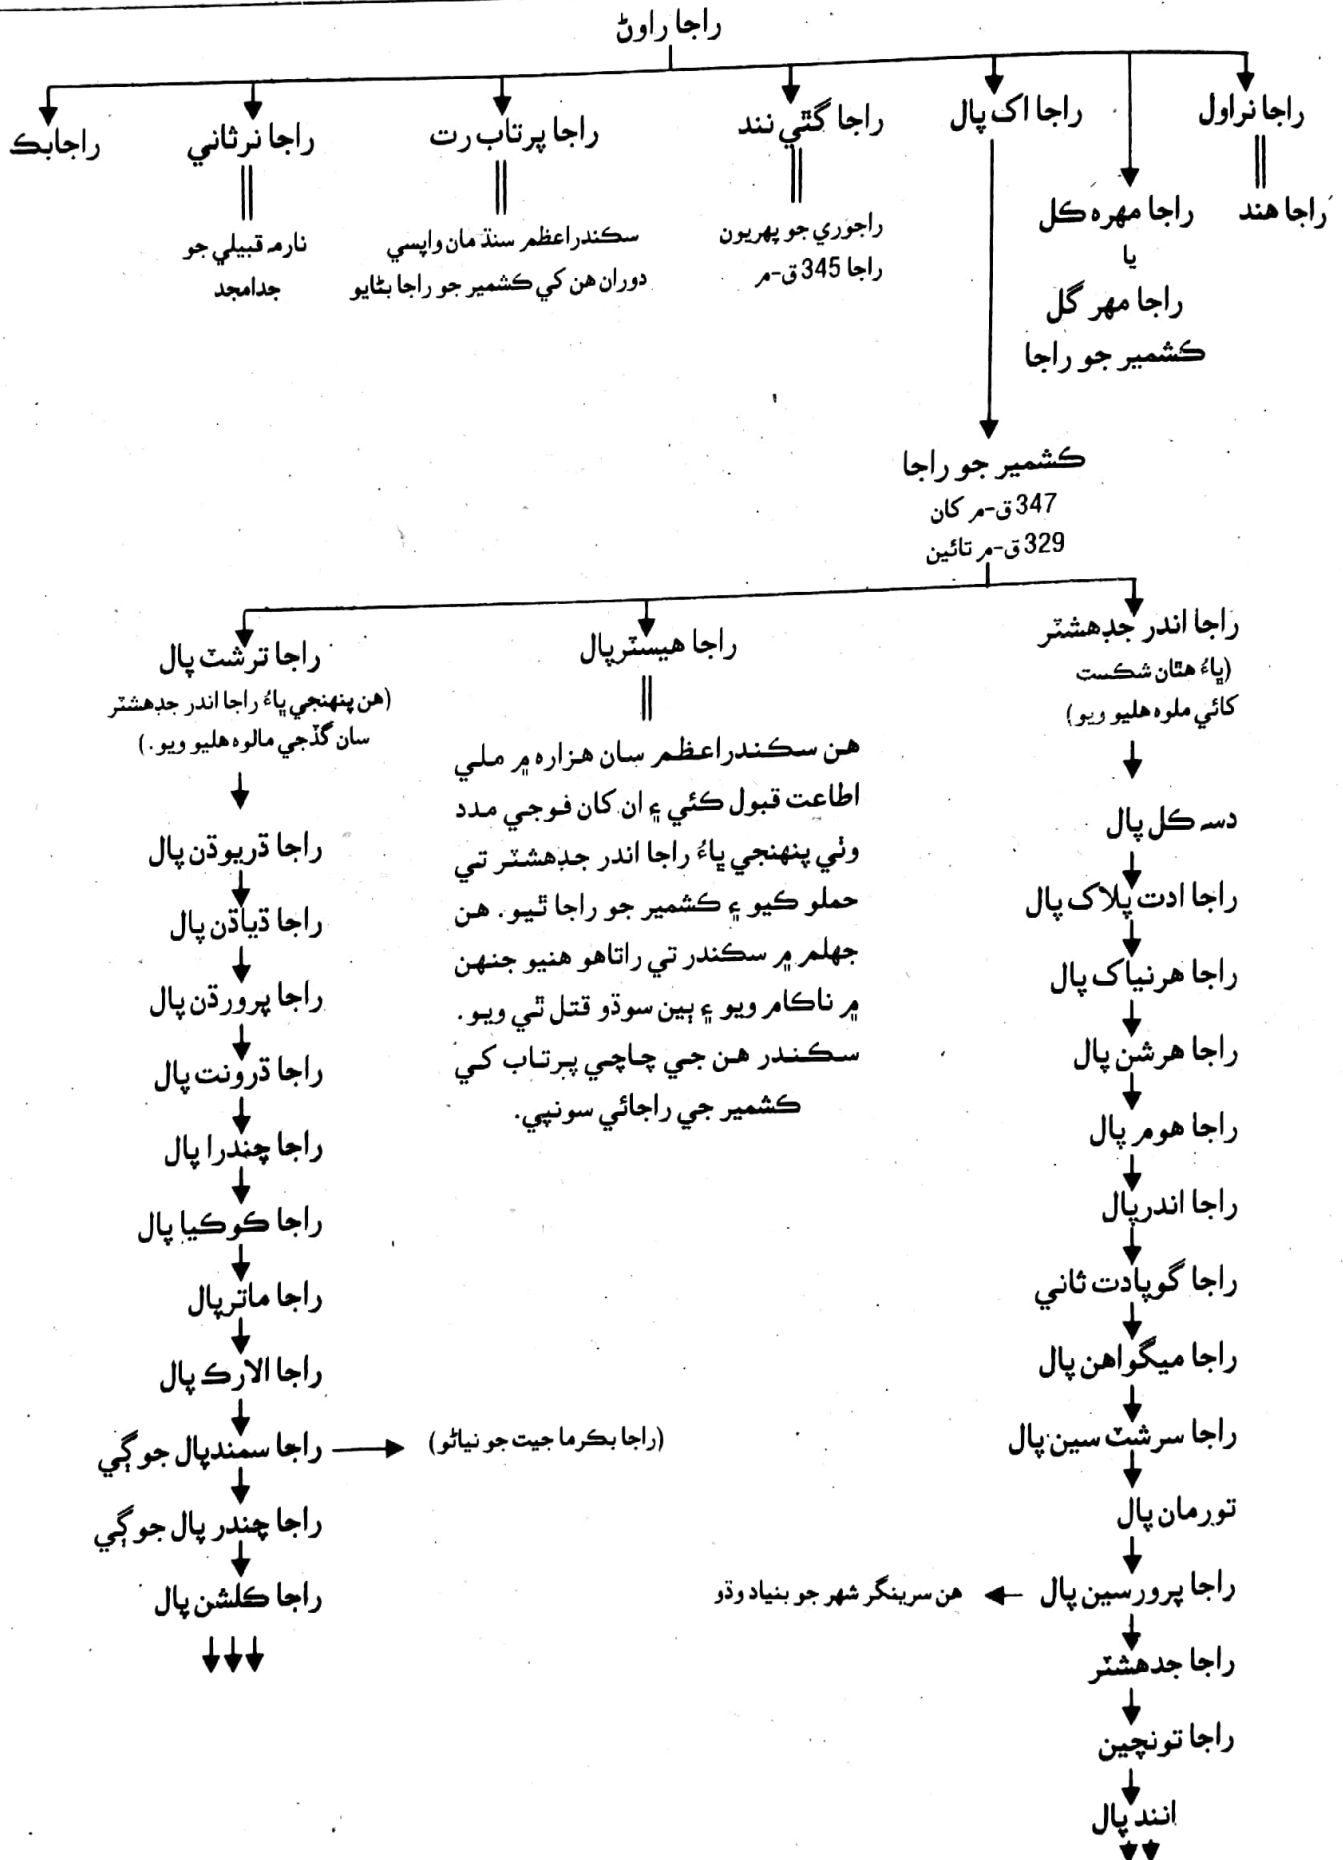 راجا راوڻ
راجا نراول
راجا هند
راجا مهره ڪل
يا
راجا مهر گل
ڪشمير جو راجا
راجا اک پال
راجا گٿي نند
راجوري جو پهريون
راجا 345 ق-م
راجا پرتاب رت
سڪندراعظم سنڌ مان واپسي
دوران هن کي ڪشمير جو راجا بڻايو
راجا نرثاني
نارمه قبيلي جو
جدامجد
راجابڪ
ڪشمير جو راجا
347 ق-م کان
329 ق-م تائين
راجا اندر جدهشٽر
(ڀاءُ هٿان شڪست
کائي ملوه هليو ويو)
دسہ ڪل پال
راجا ادت پلاک پال
راجا هرنياک پال
راجا هرشن پال
راجا هوم پال
راجا اندرپال
راجا گوپادت ثاني
راجا ميگواهن پال
راجا سرشٽ سين پال
تورمان پال
راجا پرورسين پال
هن سرينگر شهر جو بنياد وڌو
راجا جدهشٽر
راجا تونچين
انند پال
راجا هيسٽرپال
هن سڪندراعظم سان هزاره ۾ ملي
اطاعت قبول ڪئي ۽ ان کان فوجي مدد
وٺي پنهنجي ڀاءُ راجا اندر جدهشٽر تي
حملو ڪيو ۽ ڪشمير جو راجا ٿيو. هن
جهلم ۾ سڪندر تي راتاهو هنيو جنهن
۾ ناڪام ويو ۽ ٻين سوڌو قتل ٿي ويو.
سڪندر هن جي چاچي پرتاب کي
ڪشمير جي راجائي سونپي.
راجا ترشٽ پال
(هن پنهنجي ڀاءُ راجا اندر جدهشٽر
سان گڏجي مالوه هليو ويو.)
راجا ڌريوڌن پال
راجا ڌياڌن پال
راجا پرورڌن پال
راجا ڌرونت پال
راجا چندرا پال
راجا ڪوڪيا پال
راجا ماترپال
راجا الارڪ پال
راجا سمندپال جوڳي
(راجا بڪرما جيت جو نياڻو)
راجا چندر پال جوڳي
راجا ڪلشن پال